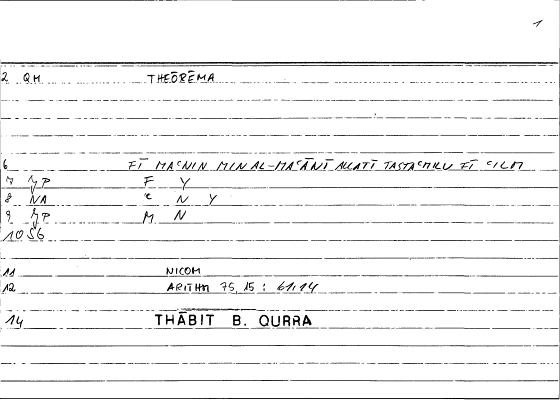 1
2 QH THEŌRĒMA
6 FĪ MAʿNIN MIN AL-MAʿĀNĪ ALLATĪ TASTAʿMILU FĪ ʿILM
7 F Y
8 NA ʿ N Y
9 M N
10 SG
11 NICOM
12 ARITHM 75, 15 : 61,14
14 THĀBIT B. QURRA